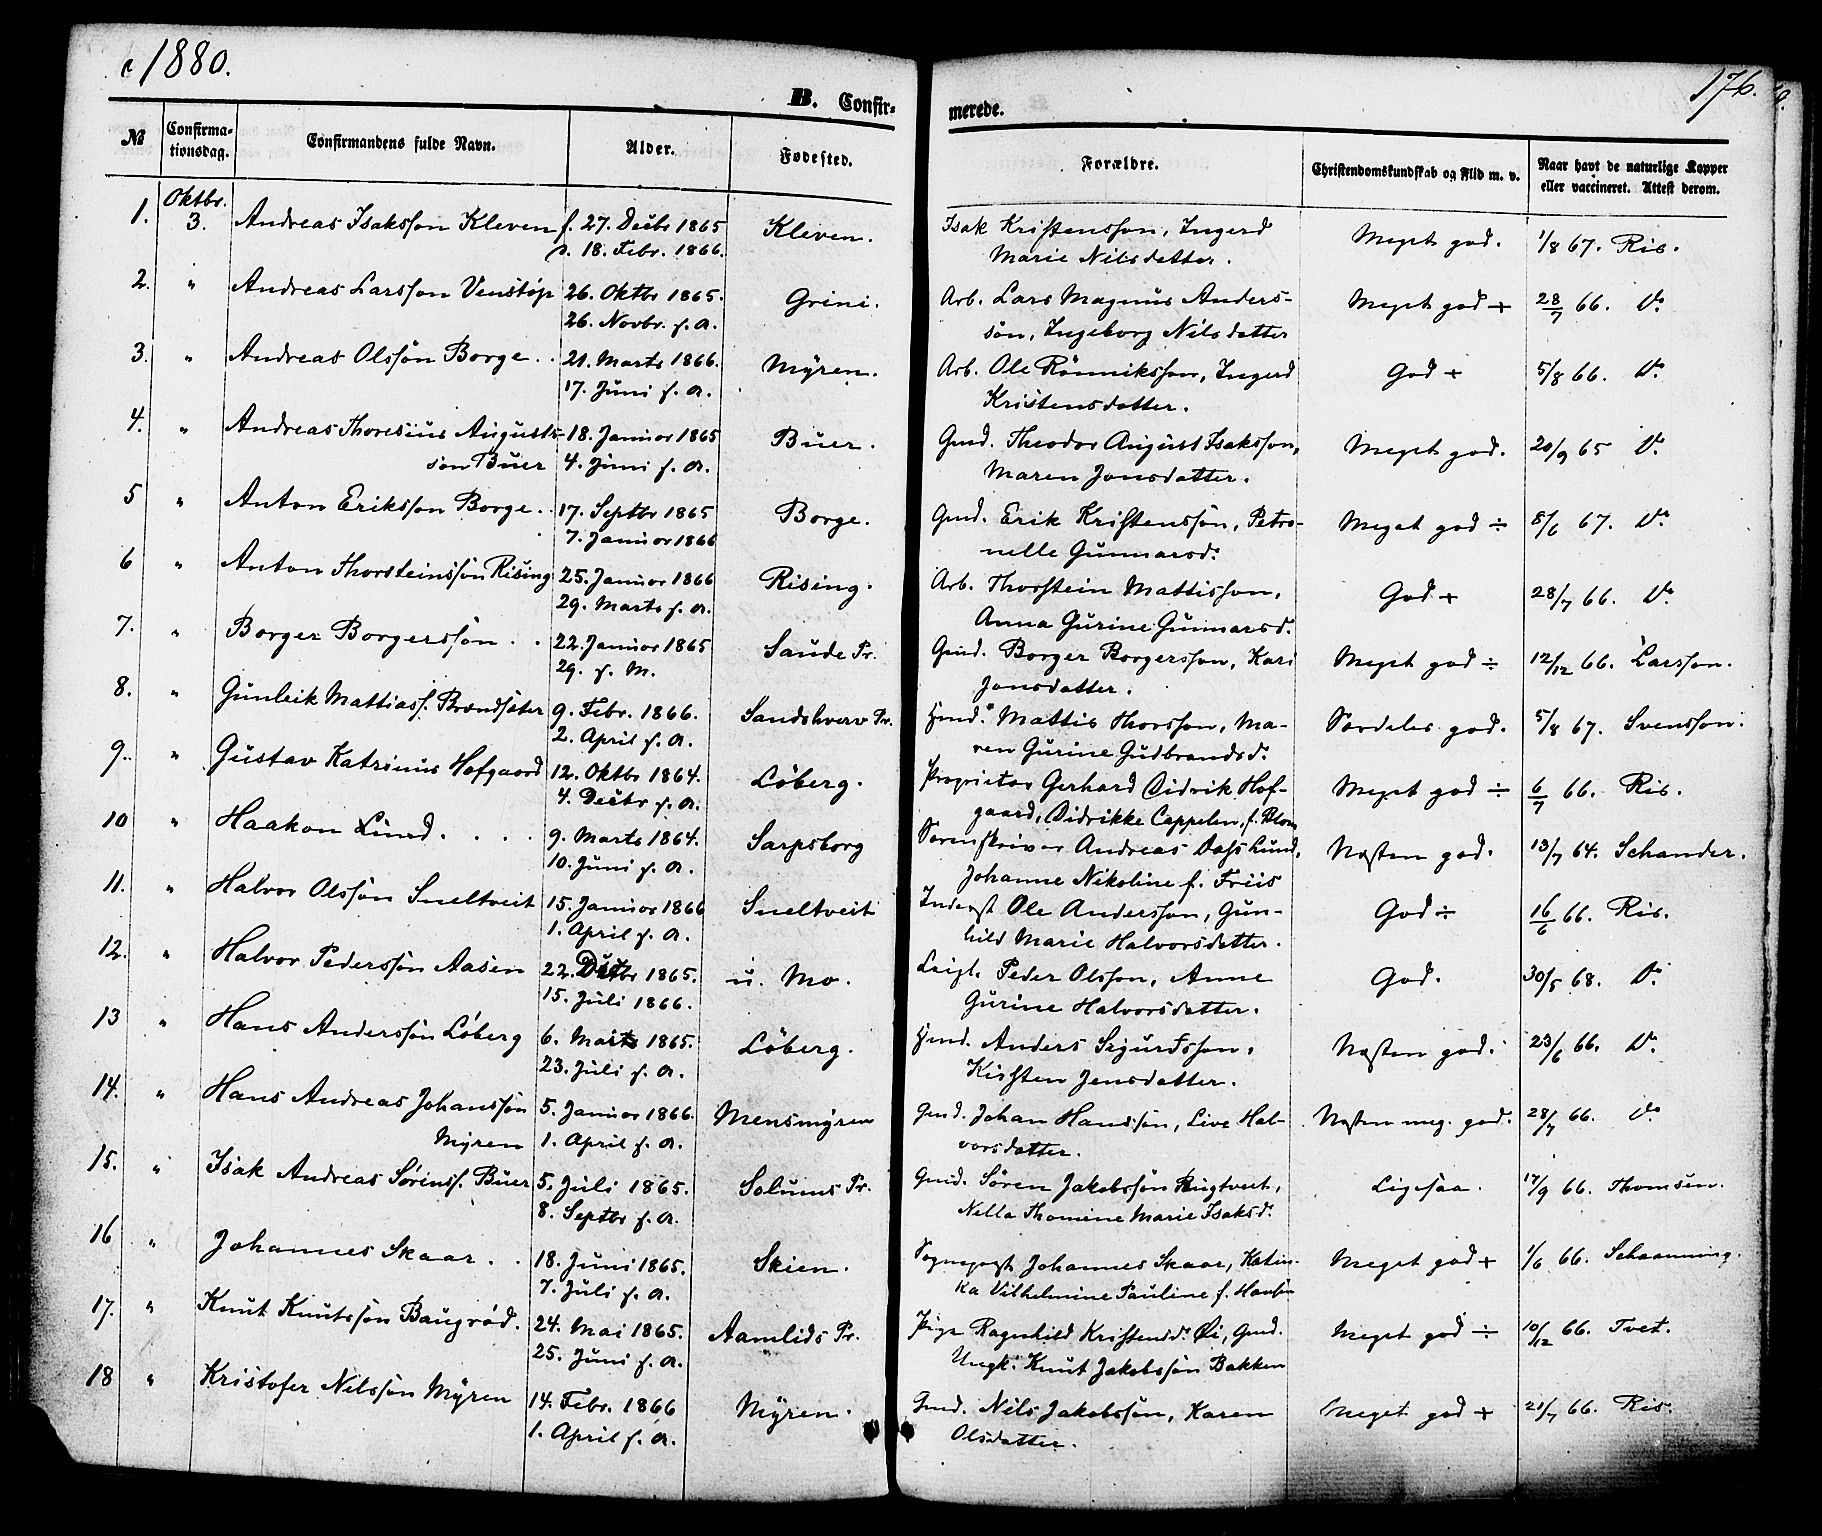 1880.
176.
B. Confir-
merede.
№
Confirma-
tionsdag.
Confirmandens fulde Navn.
Alder.
Fødested.
Forældre.
Christendomskundskab og Flid m. v.
Naar havt de naturlige Kopper
eller vaccineret. Attest derom.
1. Oktbr. 3. Andreas Isaksson Kleven f. 27. Decbr 1865 Kleven. Isak Kristensson, Ingerd Meget god. 1/8 67. Ris.
d. 18. Febr. 1866. Marie Nilsdatter.
2. " Andreas Larsson Venstøp 26. Oktbr 1865. Grini. Arb. Lars Magnus Anders- Meget god + 28/7 66. Do
26. Novbr. s. a. søn, Ingeborg Nilsdatter
3. " Andreas Olsson Borge . . 21. Marts 1866. Myren. Arb. Ole Rønniksson, Ingerd God + 5/8 66. Do
17. Juni s. a. Kristensdatter.
4. " Andreas Thoresius Augusts- 18. Januar 1865 Buer. Gmd. Theodor August Isaksson, Meget god. 20/9 65 Do
son Buer 4. Juni s. a. Maren Jonsdatter.
5 " Anton Eriksson Borge . . 17. Septbr 1865 Borge. Gmd. Erik Kristensson, Petro- Meget god ÷ 8/6 67. Do
7. Januar 1866 nelle Gunnarsd.
6 " Anton Thorsteinsson Rising 25. Januar 1866 Rising. Arb. Thorstein Mattisson, God + 28/7 66. Do
29. Marts s. a. Anna Gurine Gunnarsd.
7. " Borger Borgersson . . 22. Januar 1865 Saude Pr. Gmd. Borger Borgersson, Kari Meget god ÷ 12/12 66. Larsson.
29. s. M. Jonsdatter.
8. " Gunleik Mattiass. Brændsæter 9. Febr. 1866. Sandshverv Pr. Hmd. Mattis Thorsson, Ma- Særdeles god. 5/8 67. Svensson.
2. April s. a. ren Gurine Gudbrandsd.
9. " Gustav Katrinus Hofgaard 12. Oktbr 1864. Löberg. Proprietær Gerhard Didrik Hof- Meget god ÷ 6/7 66. Ris.
4. Decbr s. a. gaard, Didrikke Cappelen, f. Blom
10 " Haakon Lund. . . . 9. Marts 1864. Sarpsborg Sorenskriver Andreas Dass Lund, Næsten god. 13/7 64. Schander.
10. Juni s. a. Johanne Nikoline f. Friis
11. " Halvor Olsson Sneltveit 15. Januar 1866 Sneltveit Inderst Ole Andersson, Gun- God ÷ 16/6 66. Ris.
1. April s. a. hild Marie Halvorsdatter.
12. " Halvor Pedersson Aasen 22. Decbr 1865. u. Mo. Leigl. Peder Olsson, Anne God. 30/5 68. Do
15. Juli 1866. Gurine Halvorsdatter.
13 " Hans Andersson Löberg 6. Marts 1865. Löberg. Hmd. Anders Sigurdsson, Næsten god. 23/6 66. Do
23. Juli s. a. Kirsten Jensdatter.
14. " Hans Andreas Johansson 5. Januar 1866. Mensmyren Gmd. Johan Hansson, Live Hal- Næsten meg. god. 28/7 66. Do
Myren 1. April s. a. vorsdatter.
15. " Isak Andreas Sørenss. Buer 5. Juli 1865. Solums Pr. Gmd. Søren Jakobsson Rugtvert, Ligesaa. 17/9 66. Thomsen.
8. Septbr s. a. Nella Thomine Marie Isaksd.
16 " Johannes Skaar . . 18. Juni 1865. Skien. Sogneprest Johannes Skaar, Katin- Meget god + 1/6 66. Schaanning.
7. Juli s. a. ka Vilhelmine Pauline f.
17. " Knut Knutsson Baugrød. 24. Mai 1865. Aamlids Pr. Pige Ragnhild Kristensd. Øi, Gmd. Meget god ÷ 10/12 66. Tvet.
25. Juni s. a. Ungk. Knut Jakobsson Bakken
18 " Kristofer Nilsson Myren 14. Febr. 1866 Myren. Gmd. Nils Jakobsson, Karen Meget god + 21/7 66. Ris.
1. April s. a. Olsdatter.